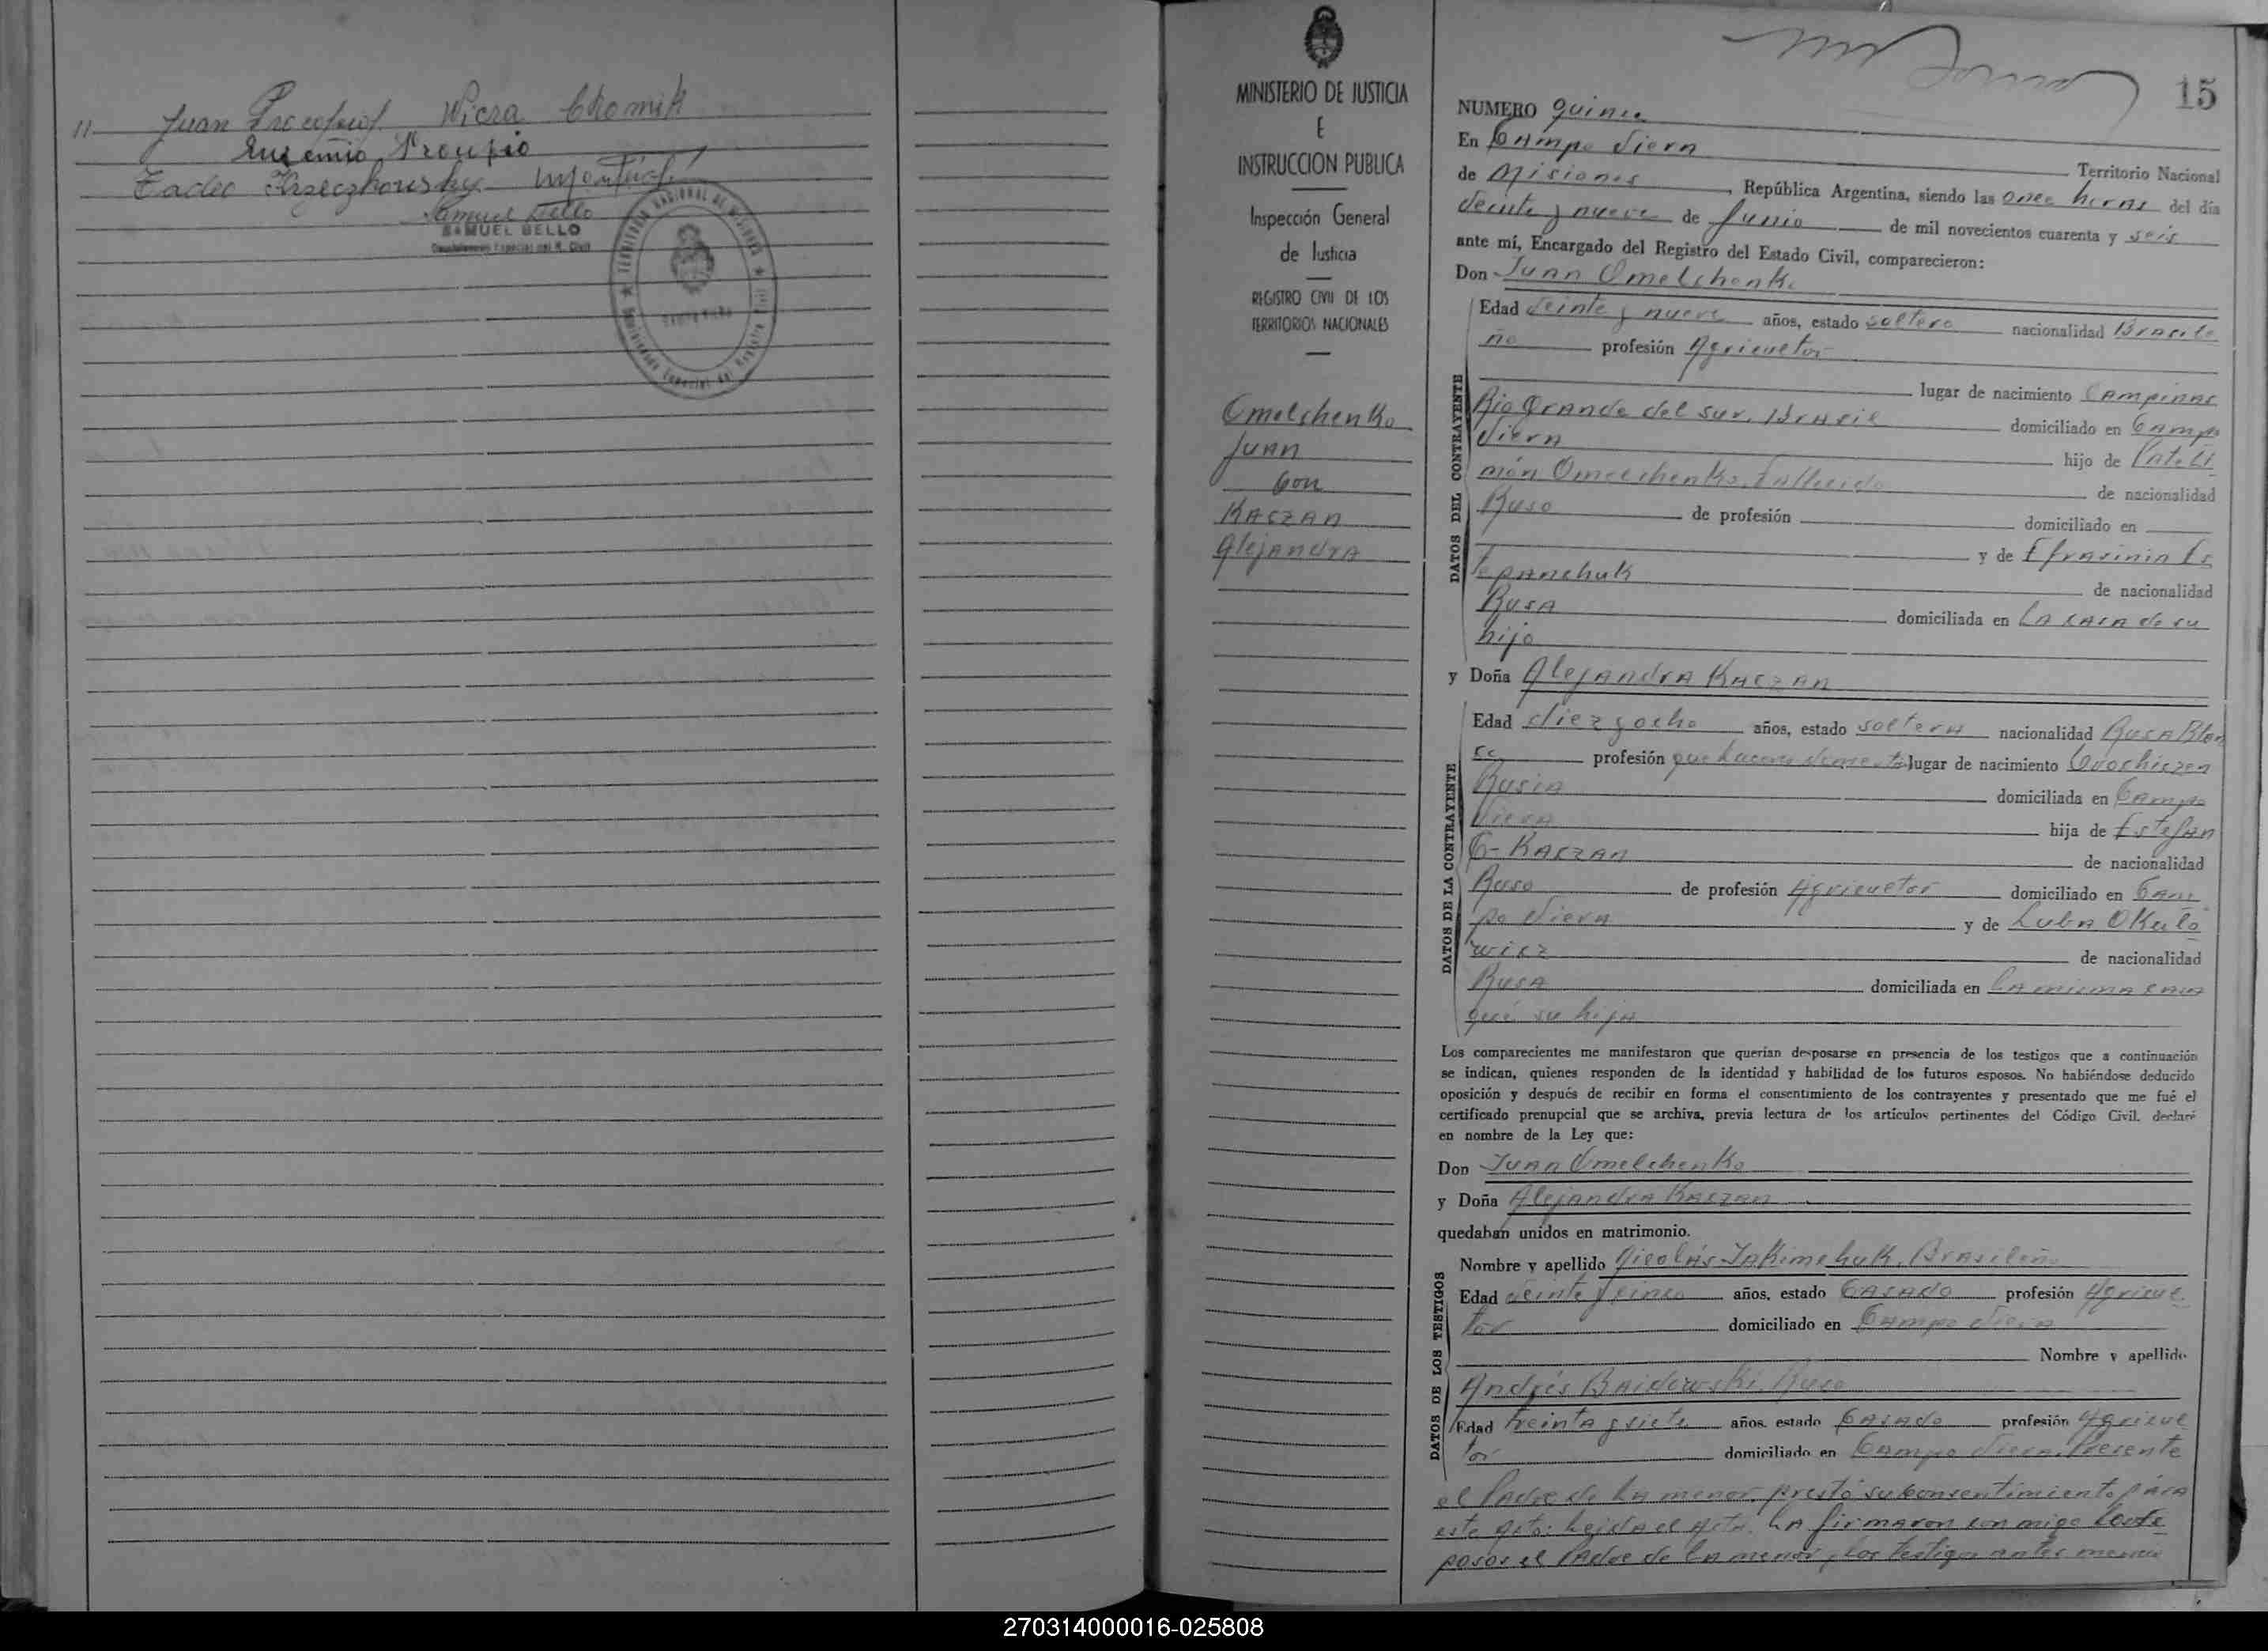 11
Juan Procopiof. Wiera Chomik
Eugenio Procupio
Tadeo
Samuel Bello
SAMUEL BELLO
TERRITORIO NACIONAL DE MISIONES
MINISTERIO DE JUSTICIA
E
INSTRUCCION PUBLICA
Inspección General
de Justicia
REGISTRO CIVIL DE LOS
TERRITORIOS NACIONALES
Omelchenko
Juan
Con
Kaczan
Alejandra
15
NUMERO quince
En Campo Viera Territorio Nacional
de Misiones, República Argentina, siendo las once horas del día
veinte y nueve de Junio de mil novecientos cuarenta y seis
ante mí, Encargado del Registro del Estado Civil, comparecieron:
Don Juan Omelchenko
DATOS DEL CONTRAYENTE
Edad veinte y nueve años, estado soltero nacionalidad Brasile
ño profesión Agricultor
lugar de nacimiento Campinas
Rio Grande del sur, Brasil domiciliado en Campo
Viera hijo de
Omelchenko, Fallecido de nacionalidad
Ruso de profesión domiciliado en
y de Efrasinia Es
tepanchuk de nacionalidad
Rusa domiciliada en La casa de su
hijo
y Doña Alejandra Kaczan
DATOS DE LA CONTRAYENTE
Edad diez y ocho años, estado soltera nacionalidad Rusa Blan
ca profesión que haceres lugar de nacimiento
Rusia domiciliada en Campo
Viera hija de Estefan
C- Kaczan de nacionalidad
Ruso de profesión Agricultor domiciliado en Cam
po Viera y de Luba Okulo
wicz de nacionalidad
Rusa domiciliada en La misma casa
que su hija
Los comparecientes me manifestaron que querían desposarse en presencia de los testigos que a continuación
se indican, quienes responden de la identidad y habilidad de los futuros esposos. No habiéndose deducido
oposición y después de recibir en forma el consentimiento de los contrayentes y presentado que me fué el
certificado prenupcial que se archiva, previa lectura de los artículos pertinentes del Código Civil, declaré
en nombre de la Ley que:
Don Juan Omelchenko
y Doña Alejandra Kaczan
quedaban unidos en matrimonio.
DATOS DE LOS TESTIGOS
Nombre y apellido Nicolás Jakimchuk, Brasileño
Edad veinte y cinco años, estado Casado profesión Agricul
tor domiciliado en Campo Viera
Nombre y apellido
Andrés Baidowski, Ruso
Edad treinta y siete años, estado Casado profesión Agricul
tor domiciliado en Campo Viera. Presente
el Padre de La menor, prestó su consentimiento para
este Acto: Leida el Acta, La firmaron con migo Los Es
posos el Padre de La menor y los testigos antes
270314000016-025808